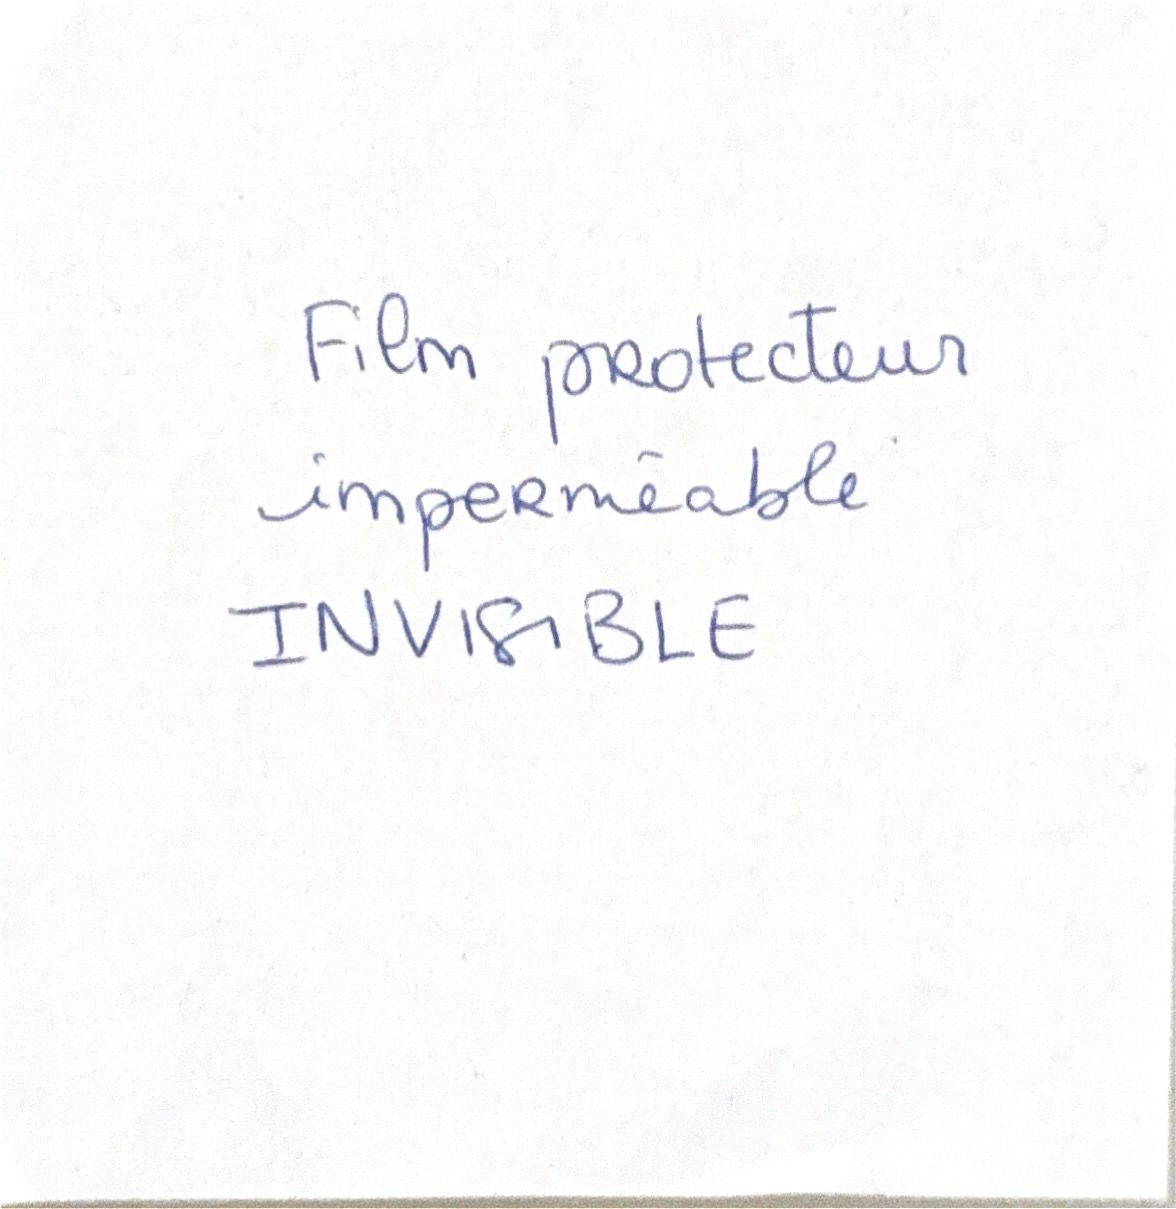 Film protecteur
imperméable
INVISIBLE